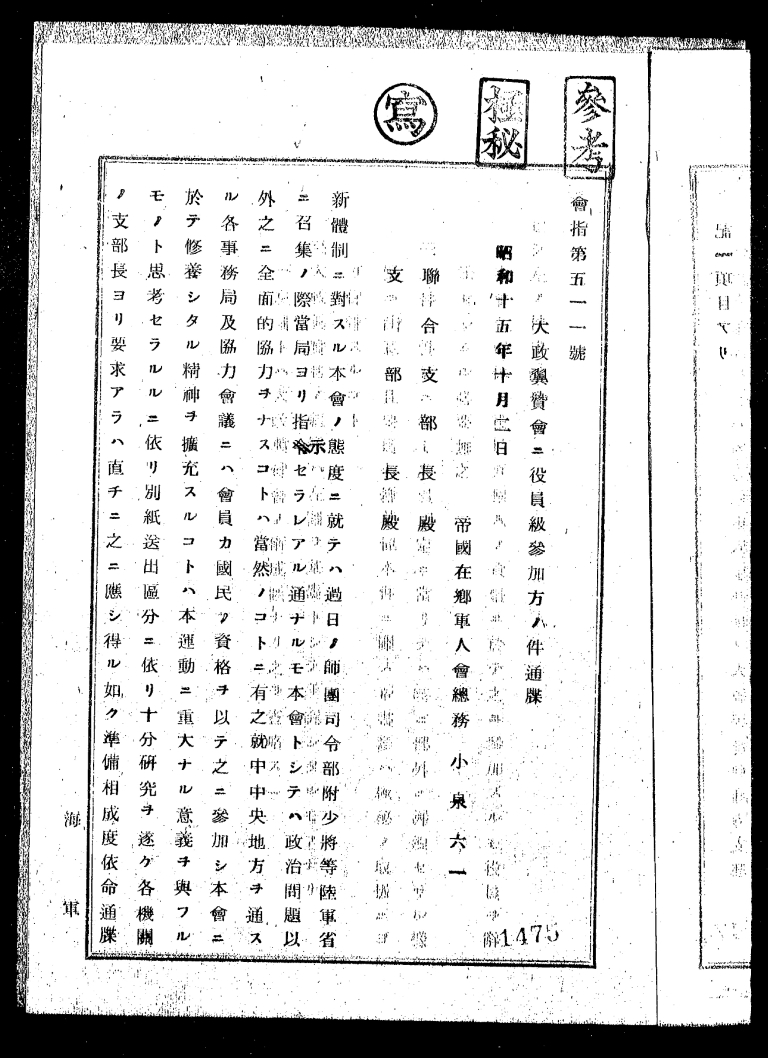 參考
極秘
寫
會指第五一一號
大政翼贊會ニ役員級參加方ノ件通牒
昭和十五年十月二日
帝國在鄉軍人會總務 小泉六一
聯合支部長殿
支部長殿
新體制ニ對スル本會ノ態度ニ就テハ過日ノ師團司令部附少將等陸軍省
ニ召集ノ際當局ヨリ指示セラレアル通ナルモ本會トシテハ政治問題以
外之ニ全面的協力ヲナスコトハ當然ノコトニ有之就中中央地方ヲ通ス
ル各事務局及協力會議ニハ會員カ國民ノ資格ヲ以テ之ニ參加シ本會ニ
於テ修養シタル精神ヲ擴充スルコトハ本運動ニ重大ナル意義ヲ與フル
モノト思考セラルルニ依リ別紙送出區分ニ依リ十分硏究ヲ遂ケ各機關
ノ支部長ヨリ要求アラハ直チニ之ニ應シ得ル如ク準備相成度依命通牒
海軍
1475